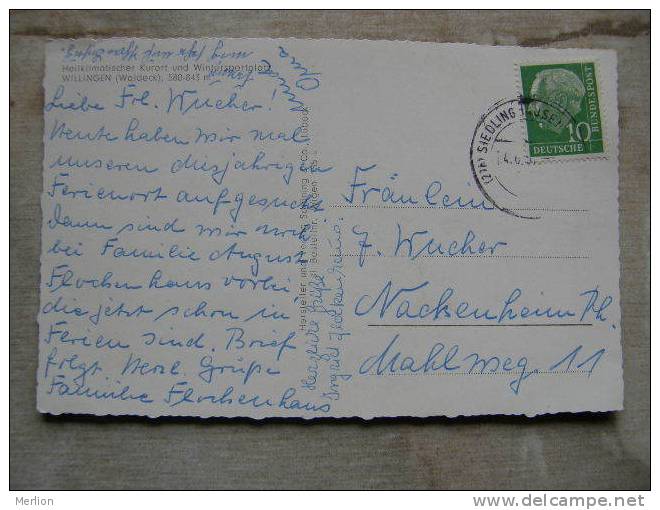 Heilklimatischer Kurort und Wintersportplatz
WILLINGEN (Waldeck), 580-843 m
Liebe Frl. Wucher!
Heute haben wir mal
unseren diesjährigen
Ferienort aufgesucht
Dann sind wir noch
bei Familie August
Flockenhaus vorbei
die jetzt schon in
Ferien sind. Brief
folgt Herzl. Grüße
Familie Flockenhaus
Herzliche Grüße
Ingrid Flockenhaus
Hersteller und Verlag Schöning & Co., Lübeck
Bei Bestellung
SIEDLINGHAUSEN
DEUTSCHE
BUNDESPOST
10
Fräulein
F. Wucher
Nackenheim Rh.
Mahlweg. 11
Merlion
www.delcampe.net